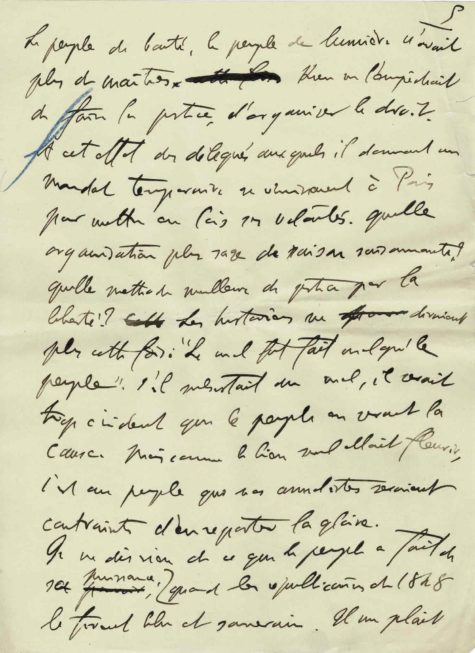 5
Le peuple de bonté, le peuple de lumière n'avait
plus de maîtres. Rien ne l'empêchait
de faire la justice, d'organiser le droit.
A cet effet des délégués auxquels il donnait un
mandat temporaire se réunissent à Paris
pour mettre en lois ses volontés. Quelle
organisation plus sage de raison raisonnante?
quelle méthode meilleure de justice par la
liberté!? Les historiens ne diraient
plus cette fois: "Le mal fut fait malgré le
peuple". S'il subsistait du mal, il serait
trop évident que le peuple en serait la
cause. Mais comme le bien seul allait fleurir,
c'est au peuple que nos annalistes seraient
contraints d'en reporter la gloire.
Je ne dis rien de ce que le peuple a fait de
sa puissance, quand les républicains de 1848
le firent libre et souverain. Il me plaît